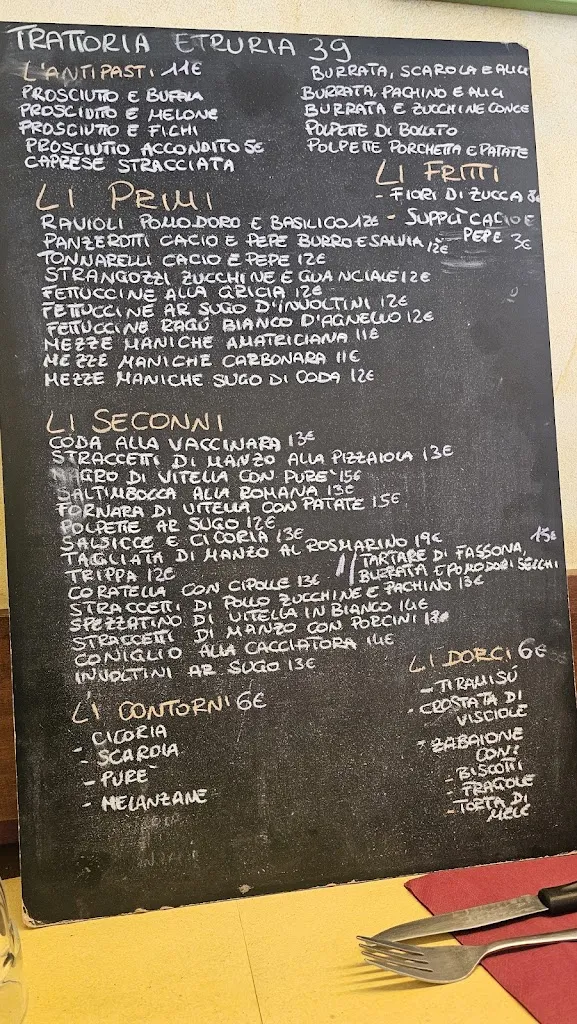 TRATTORIA ETRURIA 39
L'ANTIPASTI 11€
PROSCIUTO E BUFALA
PROSCIUTO E MELONE
PROSCIUTO E FICHI
PROSCIUTIO ACCONDITO 5€
CAPRESE STRACCIATA
BURRATA, SCAROLA E ALICI
BURRATA, PACHINO E ALICI
BURRATA E ZUCCHINE CONCE
POLPETTE DI BOLLITO
POLPETTE PORCHETTA E PATATE
LI FRITTI
- FIORI DI ZUCCA 3€
- SUPPLÌ CACIO E
PEPE 3€
LI PRIMI
RAVIOLI POMODORO E BASILICO 12€
PANZEROTTI CACIO E PEPE BURRO E SALVIA 12€
TONNARELLI CACIO E PEPE 12€
STRANGOZZI ZUCCHINE E GUANCIALE 12€
FETTUCCINE ALLA GRICIA 12€
FETTUCCINE AR SUGO D'INVOLTINI 12€
FETTUCCINE RAGÙ BIANCO D'AGNELLO 12€
MEZZE MANICHE AMATRICIANA 11€
MEZZE MANICHE CARBONARA 11€
MEZZE MANICHE SUGO DI CODA 12€
LI SECONNI
CODA ALLA VACCINARA 13€
STRACCETTI DI MANZO ALLA PIZZAIOLA 13€
MAGRO DI VITELLA CON PURE' 15€
SALTIMBOCCA ALLA ROMANA 13€
FORNARA DI VITELLA CON PATATE 15€
POLPETTE AR SUGO 12€
SALSICCE E CICORIA 13€
TAGLIATA DI MANZO AL ROSMARINO 19€
TRIPPA 12€
TARTARE DI FASSONA, 15€
BURRATA E POMODORI SECCHI
CORATELLA CON CIPOLLE 13€
STRACCETTI DI POLLO ZUCCHINE E PACHINO 13€
SPEZZATINO DI VITELLA IN BIANCO 14€
STRACCETTI DI MANZO CON PORCINI 18€
CONIGLIO ALLA CACCIATORA 14€
INVOLTINI AR SUGO 13€
LI CONTORNI 6€
- CICORIA
- SCAROLA
- PURE'
- MELANZANE
LI DORCI 6€
- TIRAMISÙ
- CROSTATA DI
VISCIOLE
- ZABAIONE
CON:
- BISCOTTI
- FRAGOLE
- TORTA DI
MELE